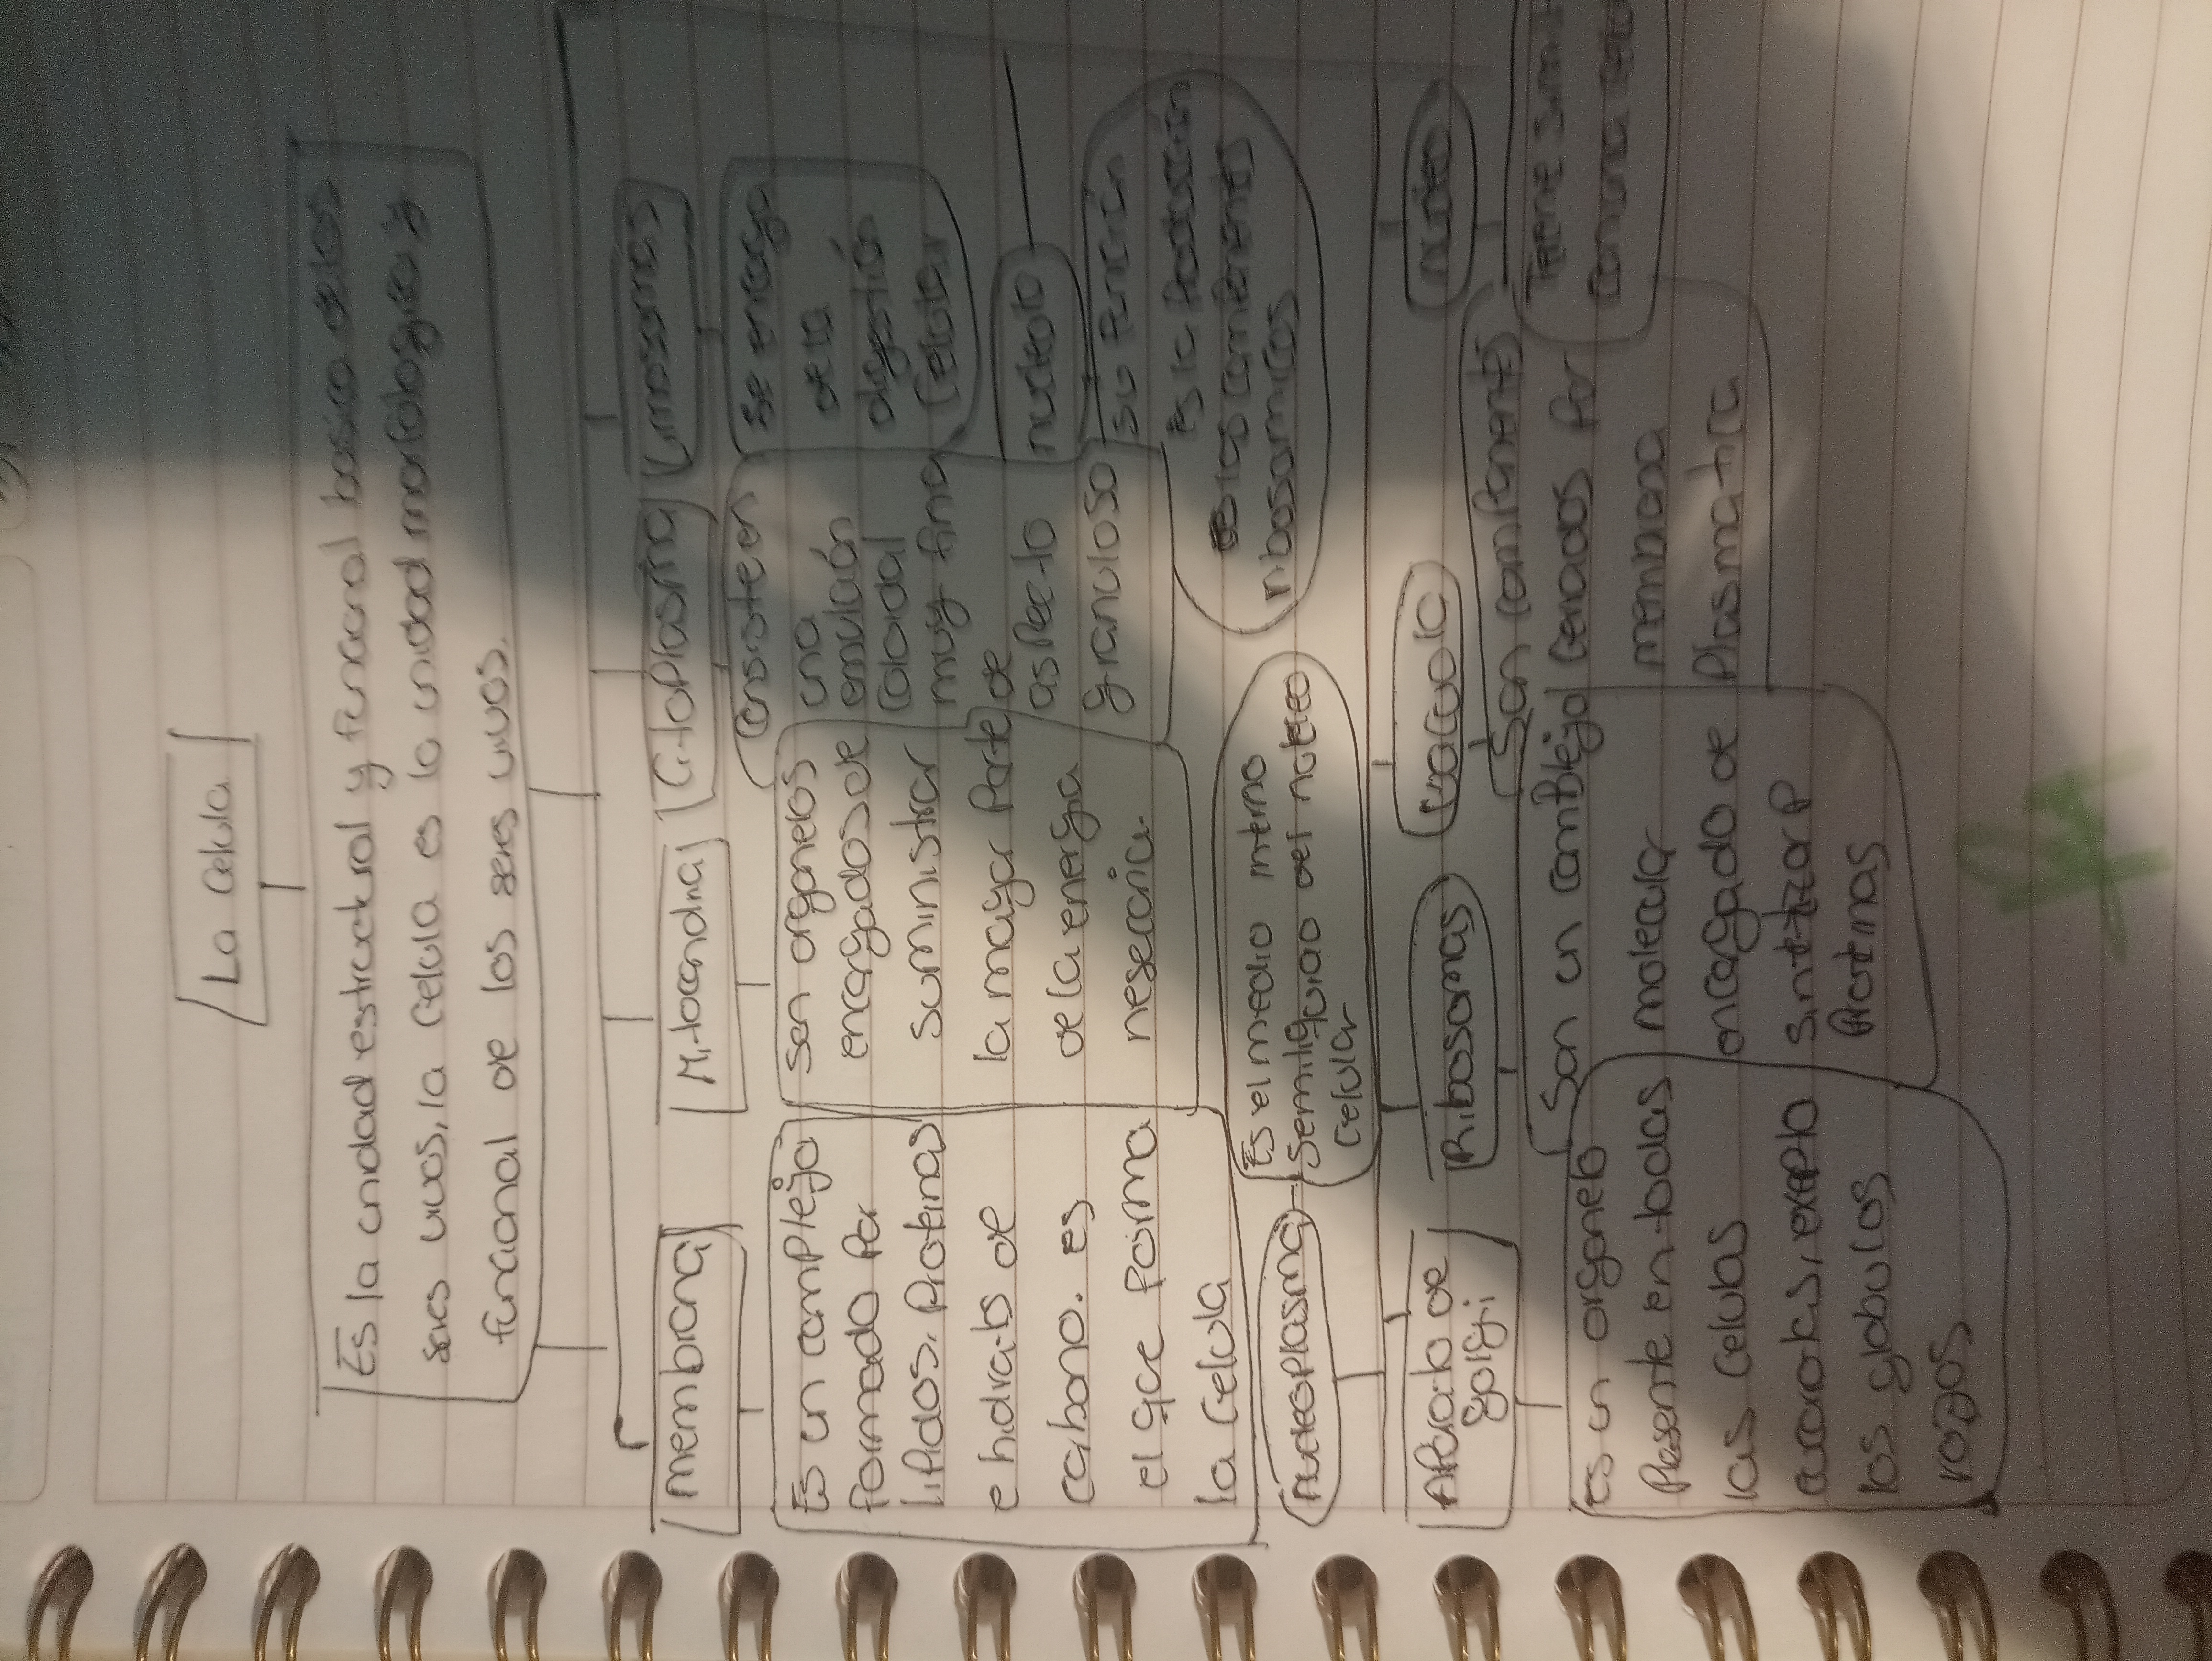 La celula
Es la unidad estructural y funcional basico de los
seres vivos, la celula es la unidad morfologica y
funcional de los seres vivos.
membrana
Mitocondria
Citoplasma
Es un complejo
formado por
lipidos, Proteinas
e hidratos de
carbono. es
el que forma
la celula
Son organelos
encargados de
suministrar
la mayor Parte
de la energia
nesecaria.
Consiste en
una
emulsión
coloidal
muy fina
de
aspecto
granuloso
Se encarga
de la
digestión
Celular
nucleolo
su función
Es la Producción
de los componentes
ribosomicos
nucleoplasma
Es el medio interno
Semiliquido del nucleo
celular
Aparato de
golgi
Ribosomas
vacuola
nucleo
Es un organelo
Presente en todas
las celulas
los globulos
rozos
Son un complejo
molecular
encargado de
Protinas
Son
Cerrados por
membrana
Plasmatica
Tiene